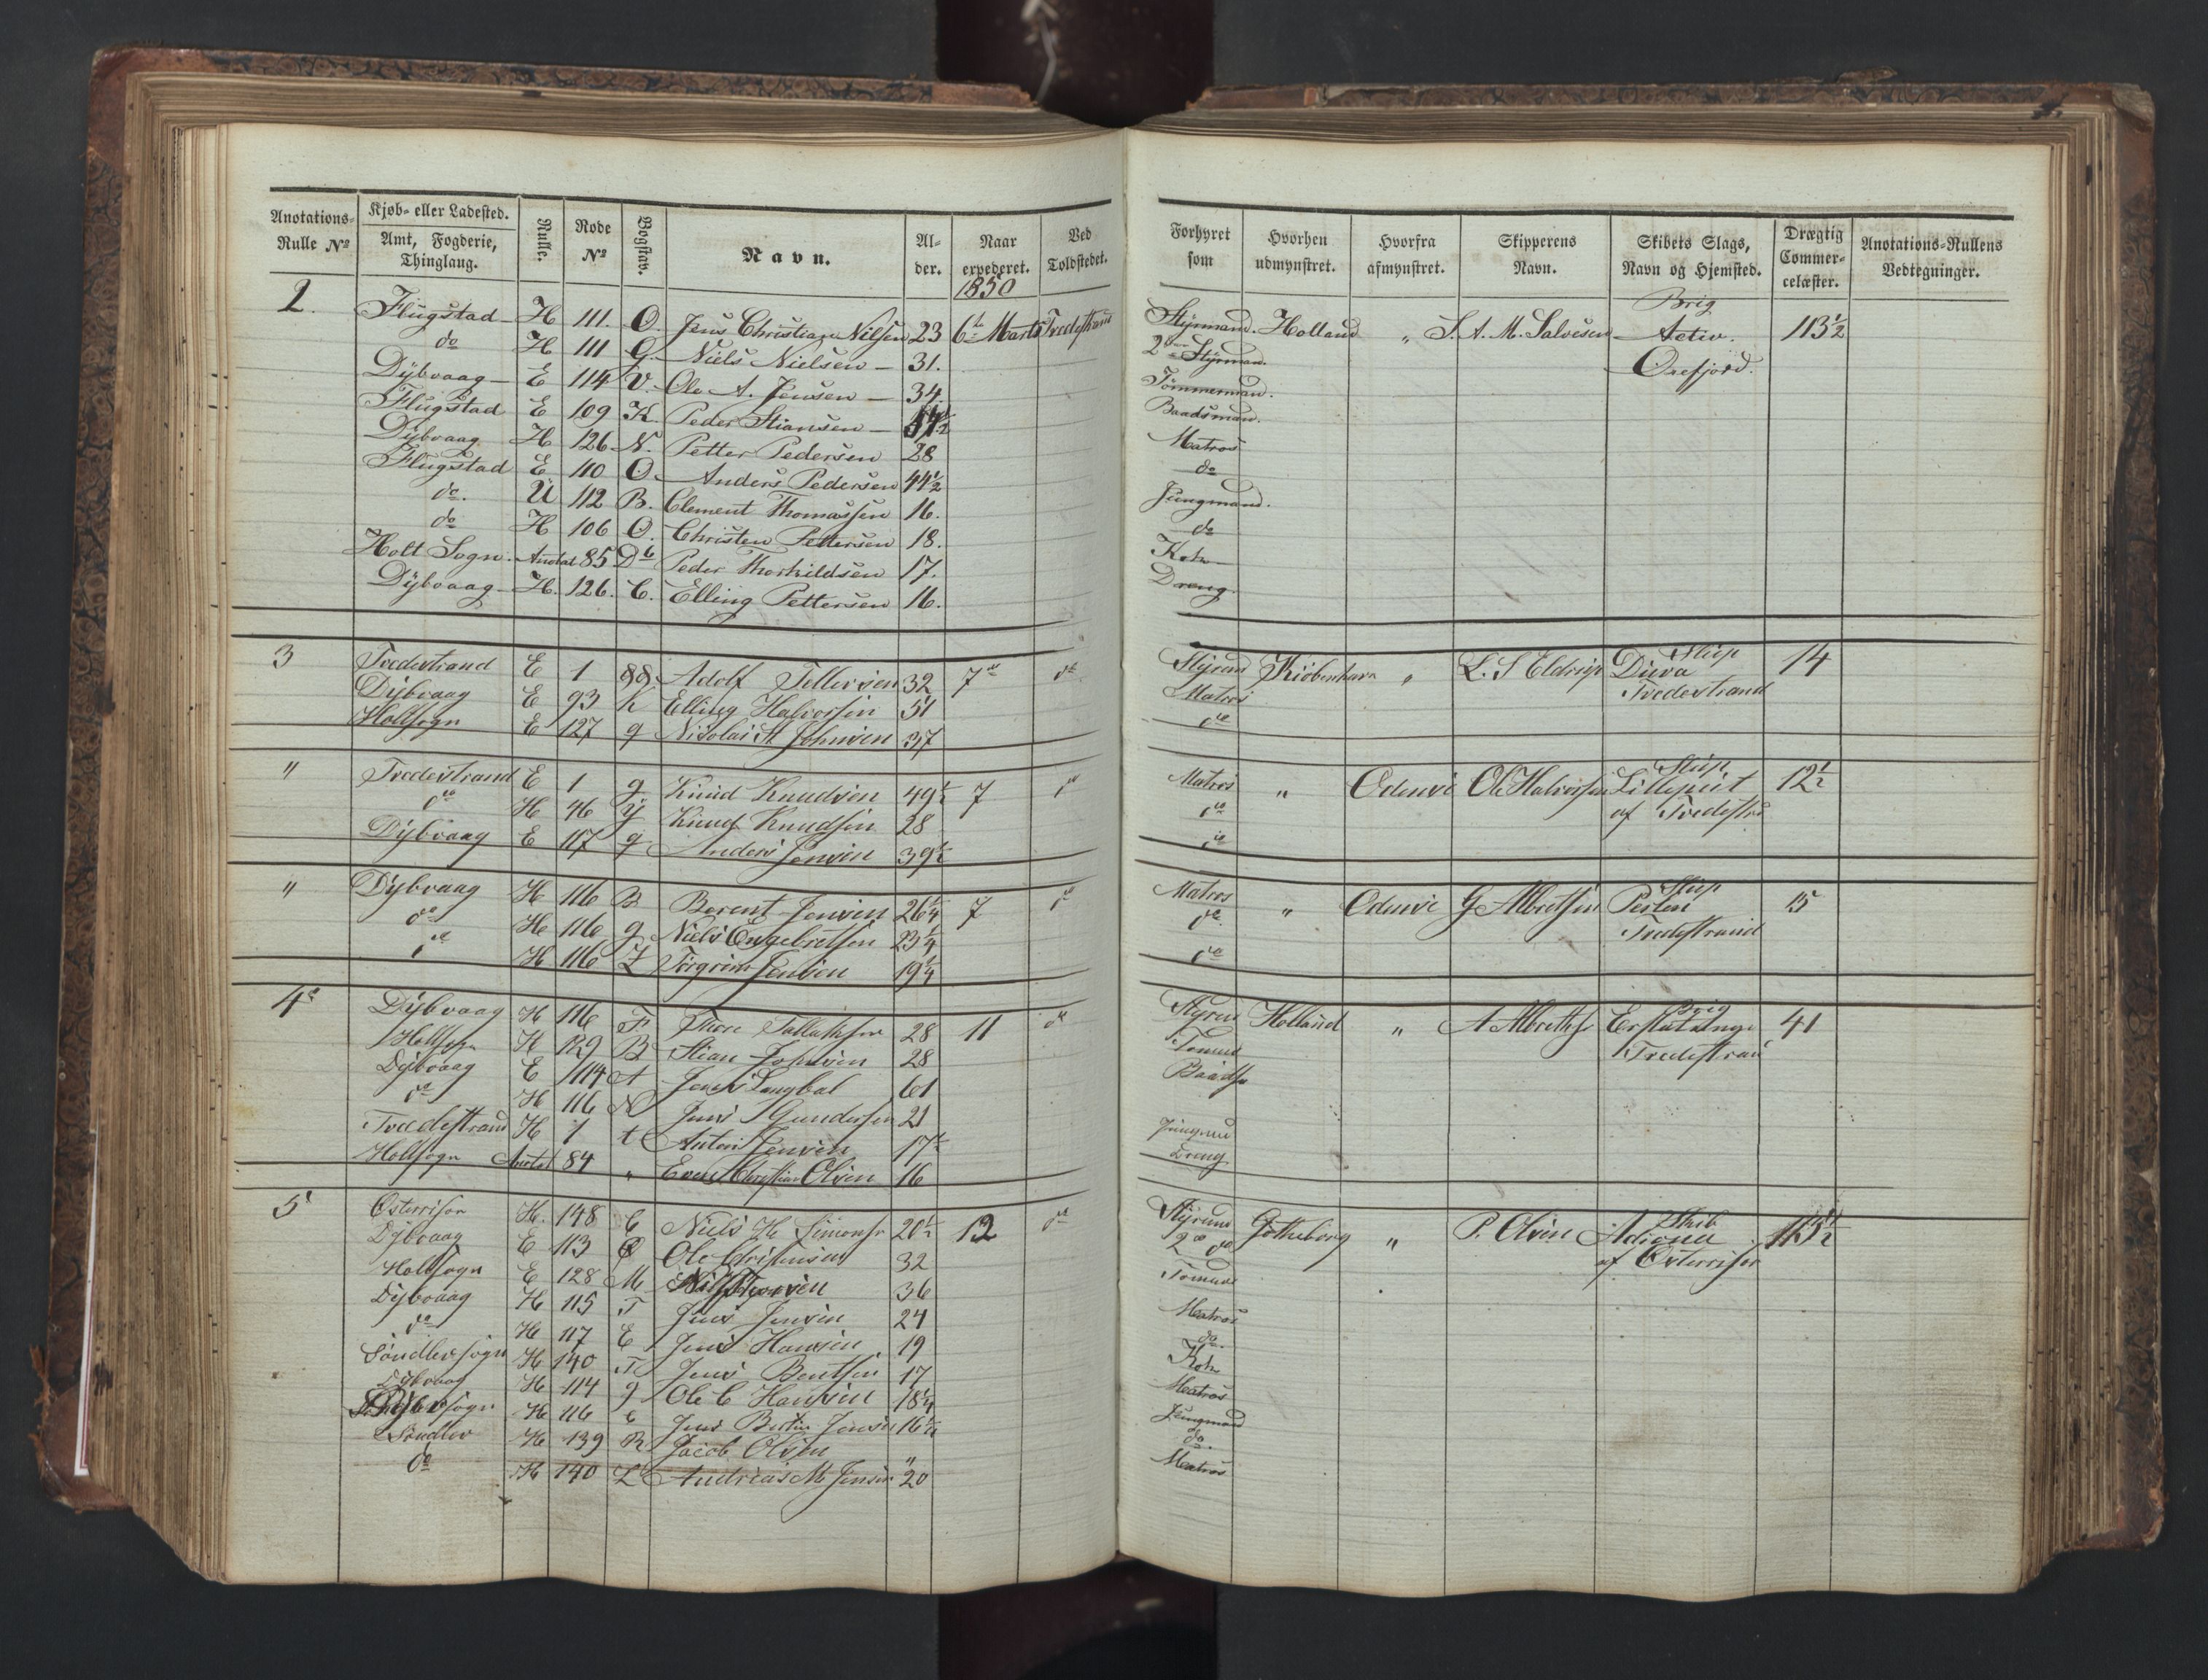 Anotations-Rulle No | Kjøb- eller Ladested. Amt, Fogderie, Thinglaug. | Rulle. | Rode No | Bogstav. | Navn. | Alder. | Naar expederet. | Ved Toldstedet.
1850
2. | Flugstad | H | 111. | O. | Jens Christian Nilsen | 23 | 6te Marts | Tvedestrand
do | H | 111 | G. | Niels Nielsen | 31.
Dÿbvaag | E | 114 | V. | Ole A. Jensen | 34.
Flugstad | E | 109 | K. | Peder Stiansen
Dÿbvaag | H | 126 | N. | Petter Pedersen | 28
Flugstad | E | 110 | O. | Anders Pedersen | 44 1/2
do. | U | 112 | B. | Clement Thomassen | 16.
do | H | 106 | O. | Christen Pettersen | 18.
Holt Sogn. | Anotat | 85 | Db | Peder Thorkildsen | 17.
Dÿbvaag | H. | 126. | C. | Elling Pettersen | 16.
3 | Tvedestrand | E | 1 | 88 | Adolf Tellevsen | 32 | 7de | do
Dÿbvaag | E | 93 | K | Elling Halvorsen | 51
Holtsogn | E | 127 | g | Nicolai St Johnsen | 37
" | Tvedestrand | E | 1 | g | Knud Knudsen | 49 1/2 | 7 | do
do | H | 46 | ÿ | Knud Knudsen | 28
Dÿbvaag | E | 117 | g | Anders Jensen | 39 1/2
" | Dÿbvaag | H | 116 | B | Berent Jensen | 26 1/4 | 7 | do
do | H | 116 | g | Niels Engebretsen | 23 1/4
do | H | 116 | Z | Torgrim Jensen | 19 1/4
4 | Dÿbvaag | H | 116 | F | Thore Tallaksen | 28 | 11 | do
Holtsogn | H | 129 | B | Stian Johnsen | 28
Dÿbvaag | E | 114 | A | 61
do | H | 116 | N | Jens Gundersen | 21
Tvedestrand | H | 1 | t | Anton Jensen | 17 1/2
Holtsogn | Anotat | 84 | " | Even Christian Olsen | 16
5 | Østerrisør | H. | 148 | C | Niels H Simonsen | 20 1/2 | 12 | do
Dÿbvaag | E | 113 | Ole Christensen | 32
Holtsogn | E | 128 | M | 36
Dÿbvaag | H | 115 | T | Jens Jensen | 24
do | H | 117 | E | Jens Hansen | 19
Söndlevsogn | H | 140 | T | Jens Bentsen | 17
Dÿbvaag | H | 114 | g | Ole C Hansen | 18 1/4
H | 116 | C | Jens Jensen
Söndlev | H | 139 | R | Jacob Olsen | "
do | H | 140 | L | Andreas M Jensen | 20
Forhyret som | Hvorhen udmynstret. | Hvorfra afmynstret. | Skipperens Navn. | Skibets Slags, Navn og Hjemsted. | Drægtig Commercelæster. | Anotations-Rullens Vedtegninger.
Brig
Stÿrmand. | Holland | " | S. A. M. Salvesen | Activ. | 113 1/2
2den Stÿrman. | Oxefjord.
Tömmerman.
Baadsman.
Matros
do
Jungmand.
do
Kok
Dreng.
Slup
Stÿrm | Kiöbenhavn | " | L. S Eldrup | Diwa | 14
Matros | Tvedestrand
do
Slup
Matros | " | Odense | Ole Halvorsen | Lilleput | 12 1/2
do | af Tvedestra
do
Slup
Matros | " | Odense | G Albretsen | Perlen | 15
do | Tvedestrand
do
Brig
Stÿrm | Holland | " | A Albrethsen | Erstatning | 41
Tömm | Tvedestrand
Baads
Jungm
Dreng
Skib
Stÿrm | Götheborg | " | P. Olsen | Adiona
2de do | af Østerrisør
Tömm
Matros
do.
Kok
Matros
Jungmand
do.
Matros